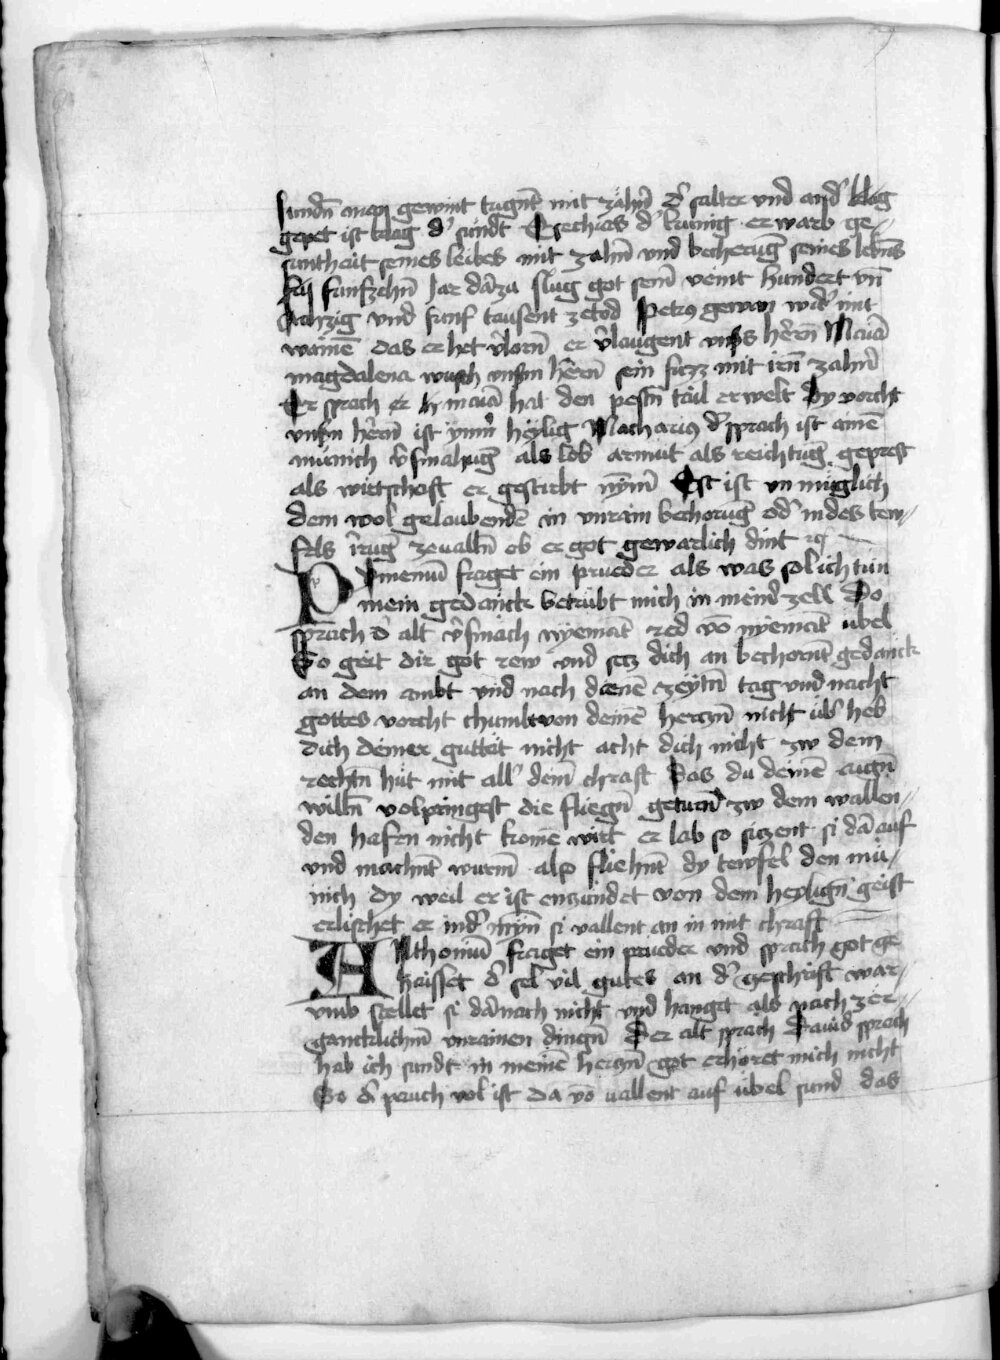 sundñ man gewint tugnt mit zähñ dˀ salter vnd andˀ klag
gepet ist klag dˀ sündt Ezechias dˀ kunig erwarb ge⸗
suntheit seines leibes mit zahñ vnd becherug seines lebñs
funfzehñ Jar dazu slug got seinˀ veint hundert vñ
achzig vnd funf tausent ze tod Petrus gewan widˀ mit
wainē das er het vˀlorñ er vˀlaugent vnsˀs herrñ Maria
magdalena wusch vnsˀm herrñ sein fuzz mit irñ zahñ
Er sprach er maria hat den pestñ tail erwelt Dy vorcht
vnsˀm herrñ ist ymmˀ heylig Macharius dˀ sprach ist ainē
münich vˀsmahug als lob armüt als reichtug geprest
als wirtschaft er gestirbt nymˀ Est ist vn müglich
dem wol gelaubendē in vnrain bechorug odˀ in des tew⸗
fels irrug zeuallñ ob er got gewarlich dint
Pymeniū fraget ein prueder als was sol ich tün
mein gedanck betrübt mich in meinˀ zell Do
sprach dˀ alt vˀsmach nyemāt red vō nyemāt übel
So geit dir got rew vnd secz dich an bechornt gedanck
an dem ambt vnd nach dienē zeytñ tag vnd nacht
gottes vorcht chumbt von deinē herczñ nicht übˀ heb
dich deiner guttet nicht acht dich nicht zw dem
rechtñ hüt mit allˀ deinˀ chraft Das du deinē augñ
willñ volpringest die fliegñ geturñ zw dem wallen⸗
den hafen nicht komē wirt er lab so siczent si dā auf
vnd machnt wurm also fliehnt dy tewfel den mü⸗
nich dy weil er ist enzündet von dem heyligñ geist
erlischet er indˀ mynˀ si vallent an in mit chraft
Anthoniū fraget ein prueder vnd sprach got ge
haisset dˀ sel vil gutes an dˀ geschrift war⸗
vmb stellet si dar nach nicht vnd hanget als nach zer⸗
gancklichñ vnrainen dingñ Der alt sprach Dauid sprach
hab ich sundt in meinē herczñ got erhöret mich nicht
So dˀ pauch vol ist da vō uallent auf übel sund das